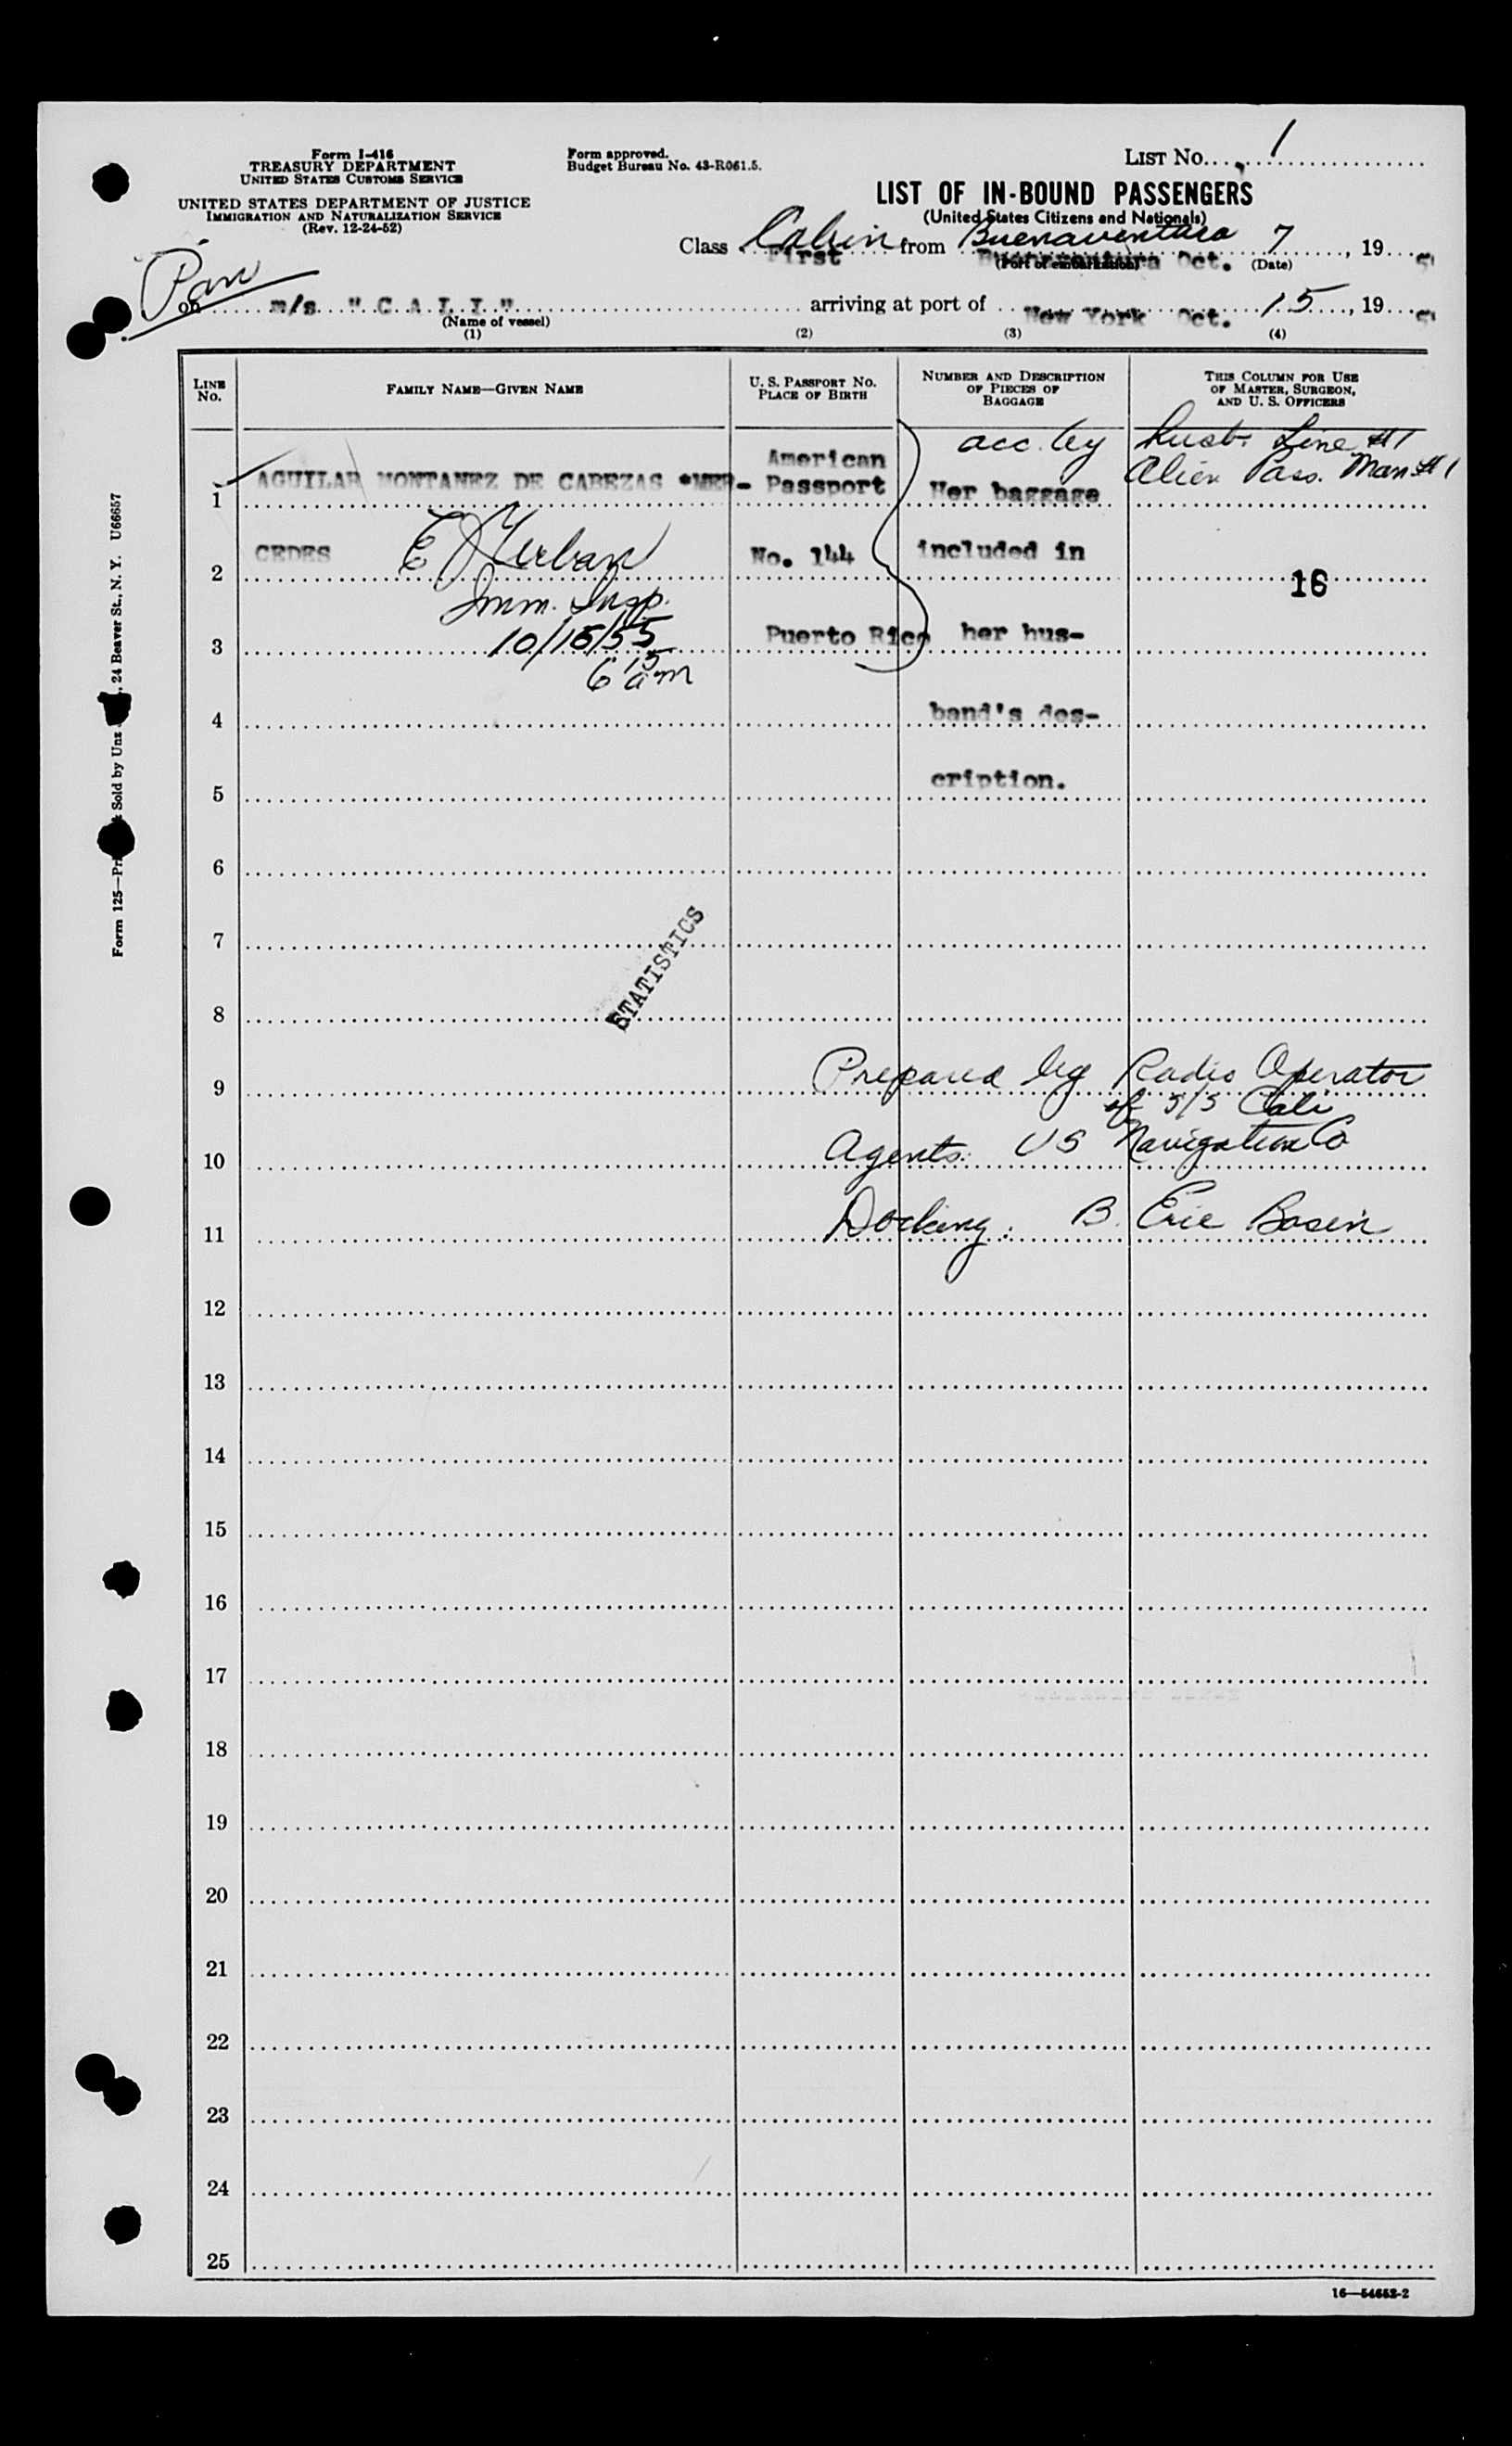 Form I-416
TREASURY DEPARTMENT
UNITED STATES CUSTOMS SERVICE
UNITED STATES DEPARTMENT OF JUSTICE
IMMIGRATION AND NATURALIZATION SERVICE
(Rev. 12-24-52)
Form approved.
Budget Bureau No. 43-R061.5.
LIST No. 1
LIST OF IN-BOUND PASSENGERS
(United States Citizens and Nationals)
Class Cabin from Buenaventura 7, 19
First Buenaventura Oct.
(Port of embarkation) (Date)
on m/s " C A L I " arriving at port of New York Oct. 15, 19
(Name of vessel)
(1) (2) (3) (4)
LINE No. FAMILY NAME—GIVEN NAME U. S. PASSPORT No. PLACE OF BIRTH NUMBER AND DESCRIPTION OF PIECES OF BAGGAGE THIS COLUMN FOR USE OF MASTER, SURGEON, AND U. S. OFFICERS
acc. by husb. Line #1
American Alien Pass. Man #1
1 AGUILAR MONTANEZ DE CABEZAS *MER- Passport Her baggage
2 CEDES No. 144 included in 16
Imm. Insp.
3 10/15/55 Puerto Rico her hus-
6 15 am
4 band's des-
5 cription.
6
7
STATISTICS
8
9 Prepared by Radio Operator
of S/S Cali
10 Agents: US Navigation Co
11 Docking: B. Erie Basin
12
13
14
15
16
17
18
19
20
21
22
23
24
25
16—54652-2
Form 125— Sold by Unz , 24 Beaver St., N. Y. U66657